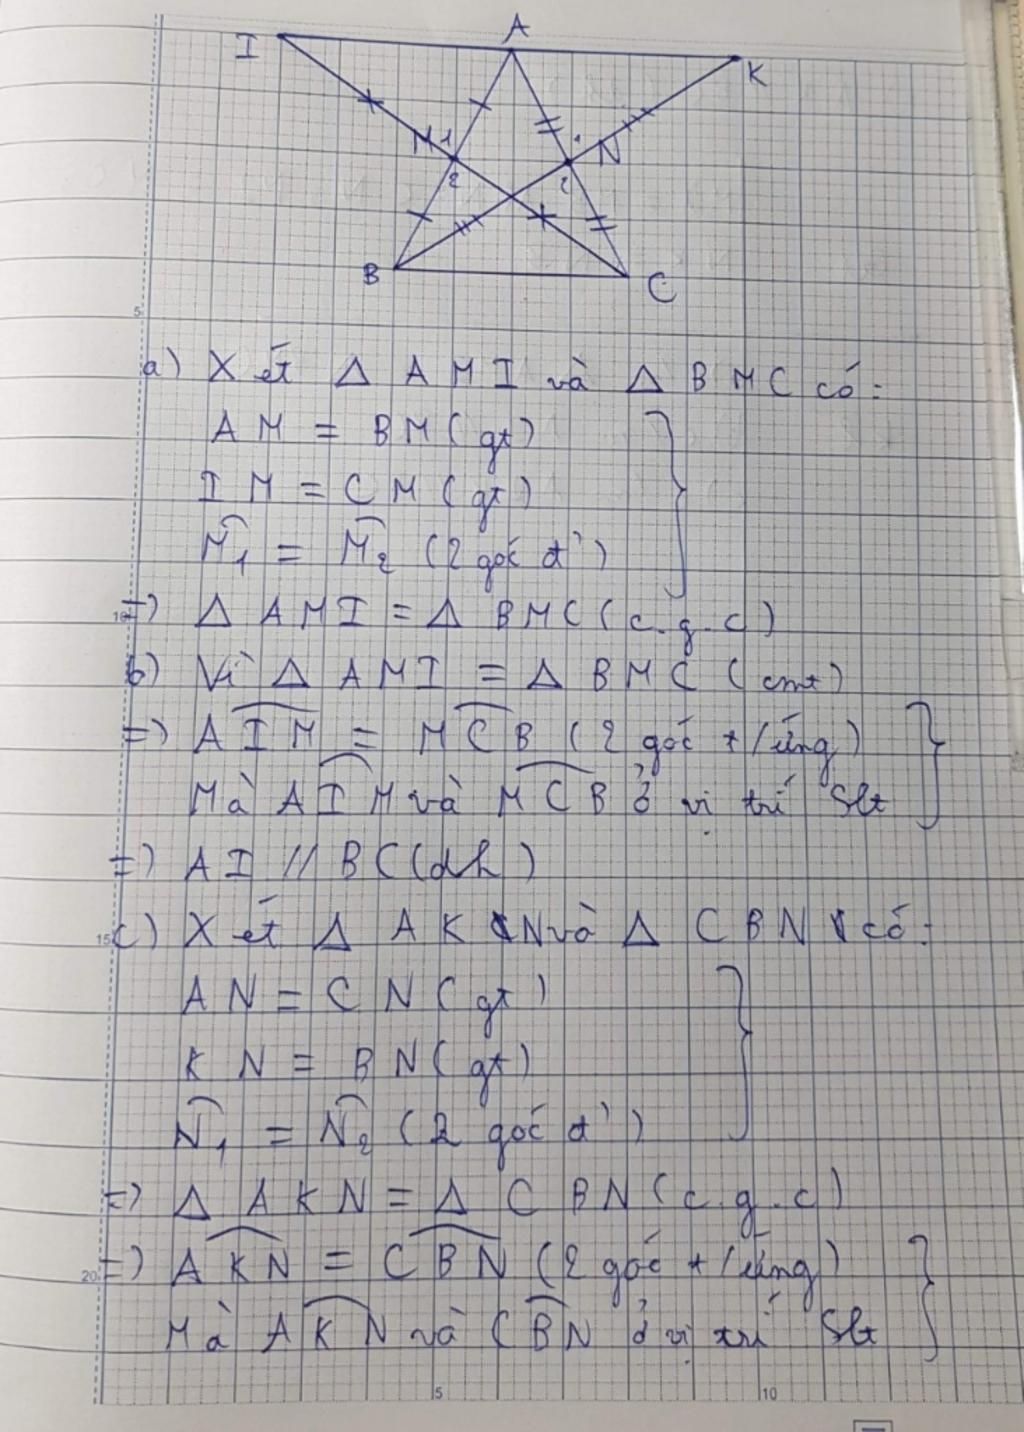 I A K
M 1 1 N
2 2
B C
5
a) Xét Δ AMI và Δ BMC có:
AM = BM (gt)
IM = CM (gt)
M̂₁ = M̂₂ (2 góc đ')
10 => Δ AMI = Δ BMC (c.g.c)
b) Vì Δ AMI = Δ BMC (cmt)
=> AÎM = MĈB (2 góc t/ứng)
Mà AÎM và MĈB ở vị trí Slt
=> AI // BC (dh)
15 c) Xét Δ AKN và Δ CBN có:
AN = CN (gt)
KN = BN (gt)
N̂₁ = N̂₂ (2 góc đ')
=> Δ AKN = Δ CBN (c.g.c)
20 => AK̂N = CB̂N (2 góc t/ứng)
Mà AK̂N và CB̂N ở vị trí Slt
5 10